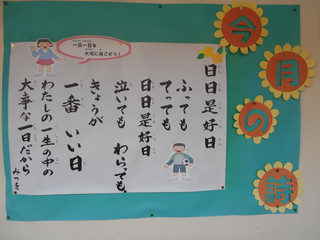 今月の詩
一日一日を
大切に過ごそう！
日日是好日
ふっても
てっても
日日是好日
泣いても わらっても
きょうが
一番 いい日
わたしの一生の中の
大事な一日だから
みつを